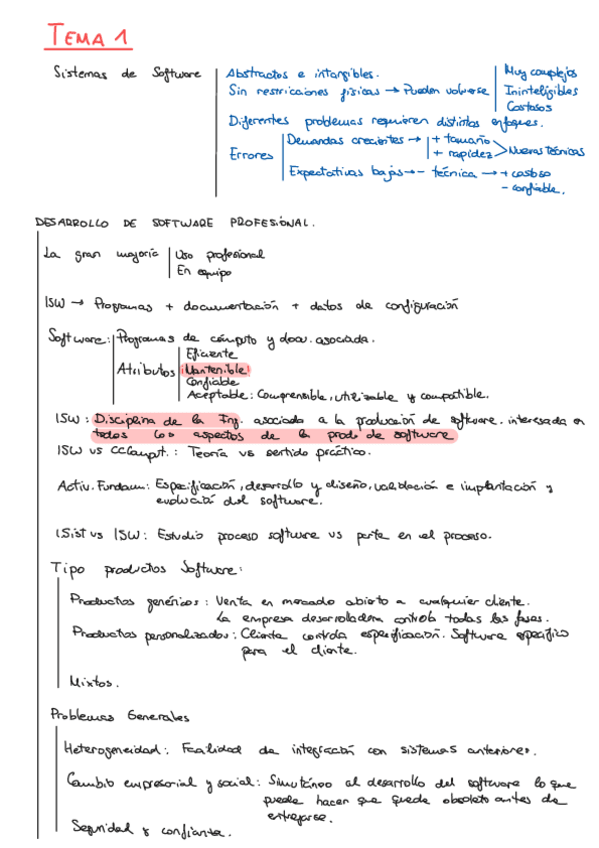 TEMA 1
Sistemas de Software
Abstractos e intangibles.
Sin restricciones físicas → Pueden volverse
Muy complejos
Ininteligibles
Costosos
Diferentes problemas requieren distintos enfoques.
Errores
Demandas crecientes →
+ tamaño
+ rapidez
Nuevas técnicas
Expectativas bajas → - técnica → + costoso
- confiable.
DESARROLLO DE SOFTWARE PROFESIONAL.
La gran mayoría
Uso profesional
En equipo
ISW → Programas + documentación + datos de configuración
Software: Programas de cómputo y docu. asociada.
Atributos
Eficiente
¡Mantenible!
Confiable
Aceptable: Comprensible, utilizable y compatible.
ISW: Disciplina de la Ing. asociada a la producción de software. interesada en
todos los aspectos de la prod. de software
ISW vs CCComput.: Teoría vs sentido práctico.
Activ. Fundam.: Especificación, desarrollo y diseño, validación e implantación y
evolución del software.
ISist vs ISW: Estudio proceso software vs parte en el proceso.
Tipo productos Software:
Productos genéricos: Venta en mercado abierto a cualquier cliente.
La empresa desarrolladora controla todas las fases.
Productos personalizados: Cliente controla especificación. Software específico
para el cliente.
Mixtos.
Problemas Generales
Heterogeneidad: Facilidad de integración con sistemas anteriores.
Cambio empresarial y social: Simultáneo al desarrollo del software lo que
puede hacer que quede obsoleto antes de
entregarse.
Seguridad y confianza.